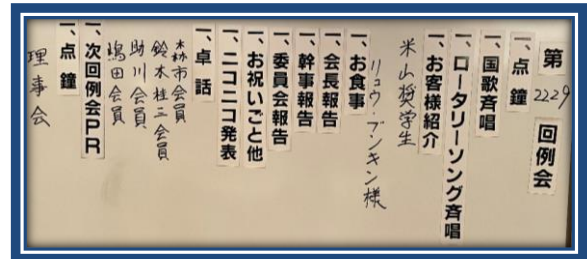 第2229回例会
一、点鐘
一、国歌斉唱
一、ロータリーソング斉唱
一、お客様紹介
米山奨学生
リョウ・ブンキン様
一、お食事
一、会長報告
一、幹事報告
一、委員会報告
一、お祝いごと他
一、ニコニコ発表
一、卓話
森市会員
鈴木桂三会員
助川会員
嶋田会員
一、次回例会PR
一、点鐘
理事会